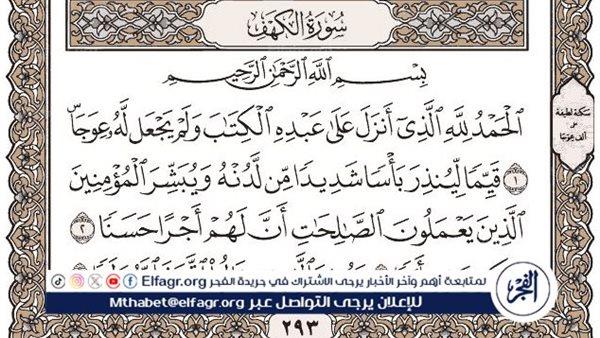 سُورَةُ الكَهْفِ
بِسْمِ اللَّهِ الرَّحْمَٰنِ الرَّحِيمِ
الْحَمْدُ لِلَّهِ الَّذِي أَنزَلَ عَلَىٰ عَبْدِهِ الْكِتَابَ وَلَمْ يَجْعَل لَّهُ عِوَجَاۜ
١ قَيِّمًا لِّيُنذِرَ بَأْسًا شَدِيدًا مِّن لَّدُنْهُ وَيُبَشِّرَ الْمُؤْمِنِينَ
الَّذِينَ يَعْمَلُونَ الصَّالِحَاتِ أَنَّ لَهُمْ أَجْرًا حَسَنًا ٢
سكتة لطيفة
على
ألف عوجا
لمتابعة أهم وآخر الأخبار يرجى الاشتراك في جريدة الفجر Elfagr.org
للإعلان يرجى التواصل عبر Mthabet@elfagr.org
الفجر
٢٩٣